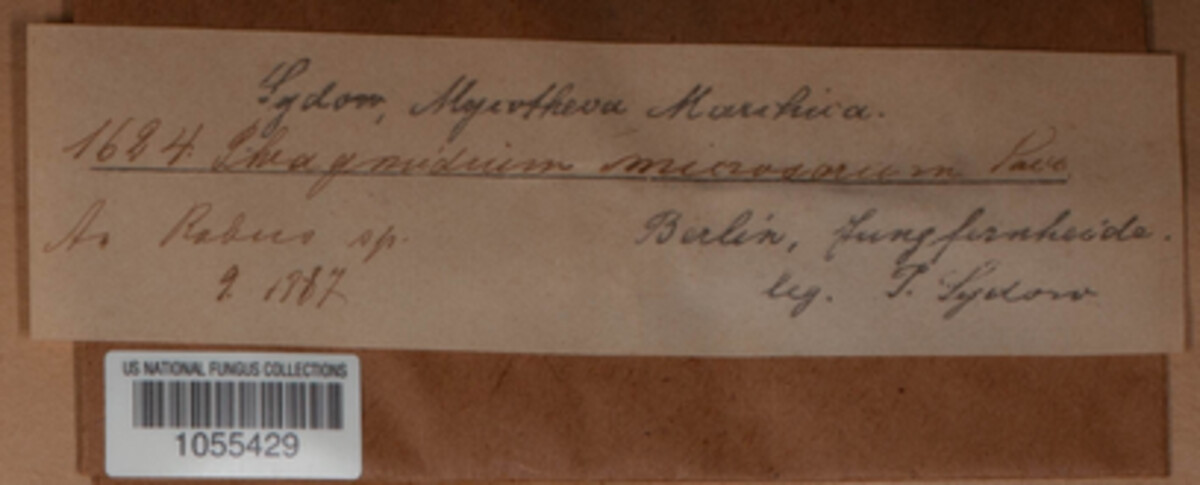 Sydow, Mycotheca Marchica.
1624. Phragmidium microsorum Sacc.
An Rubus sp.
9. 1887
Berlin, Jungfernheide.
leg. P. Sydow
US NATIONAL FUNGUS COLLECTIONS
1055429